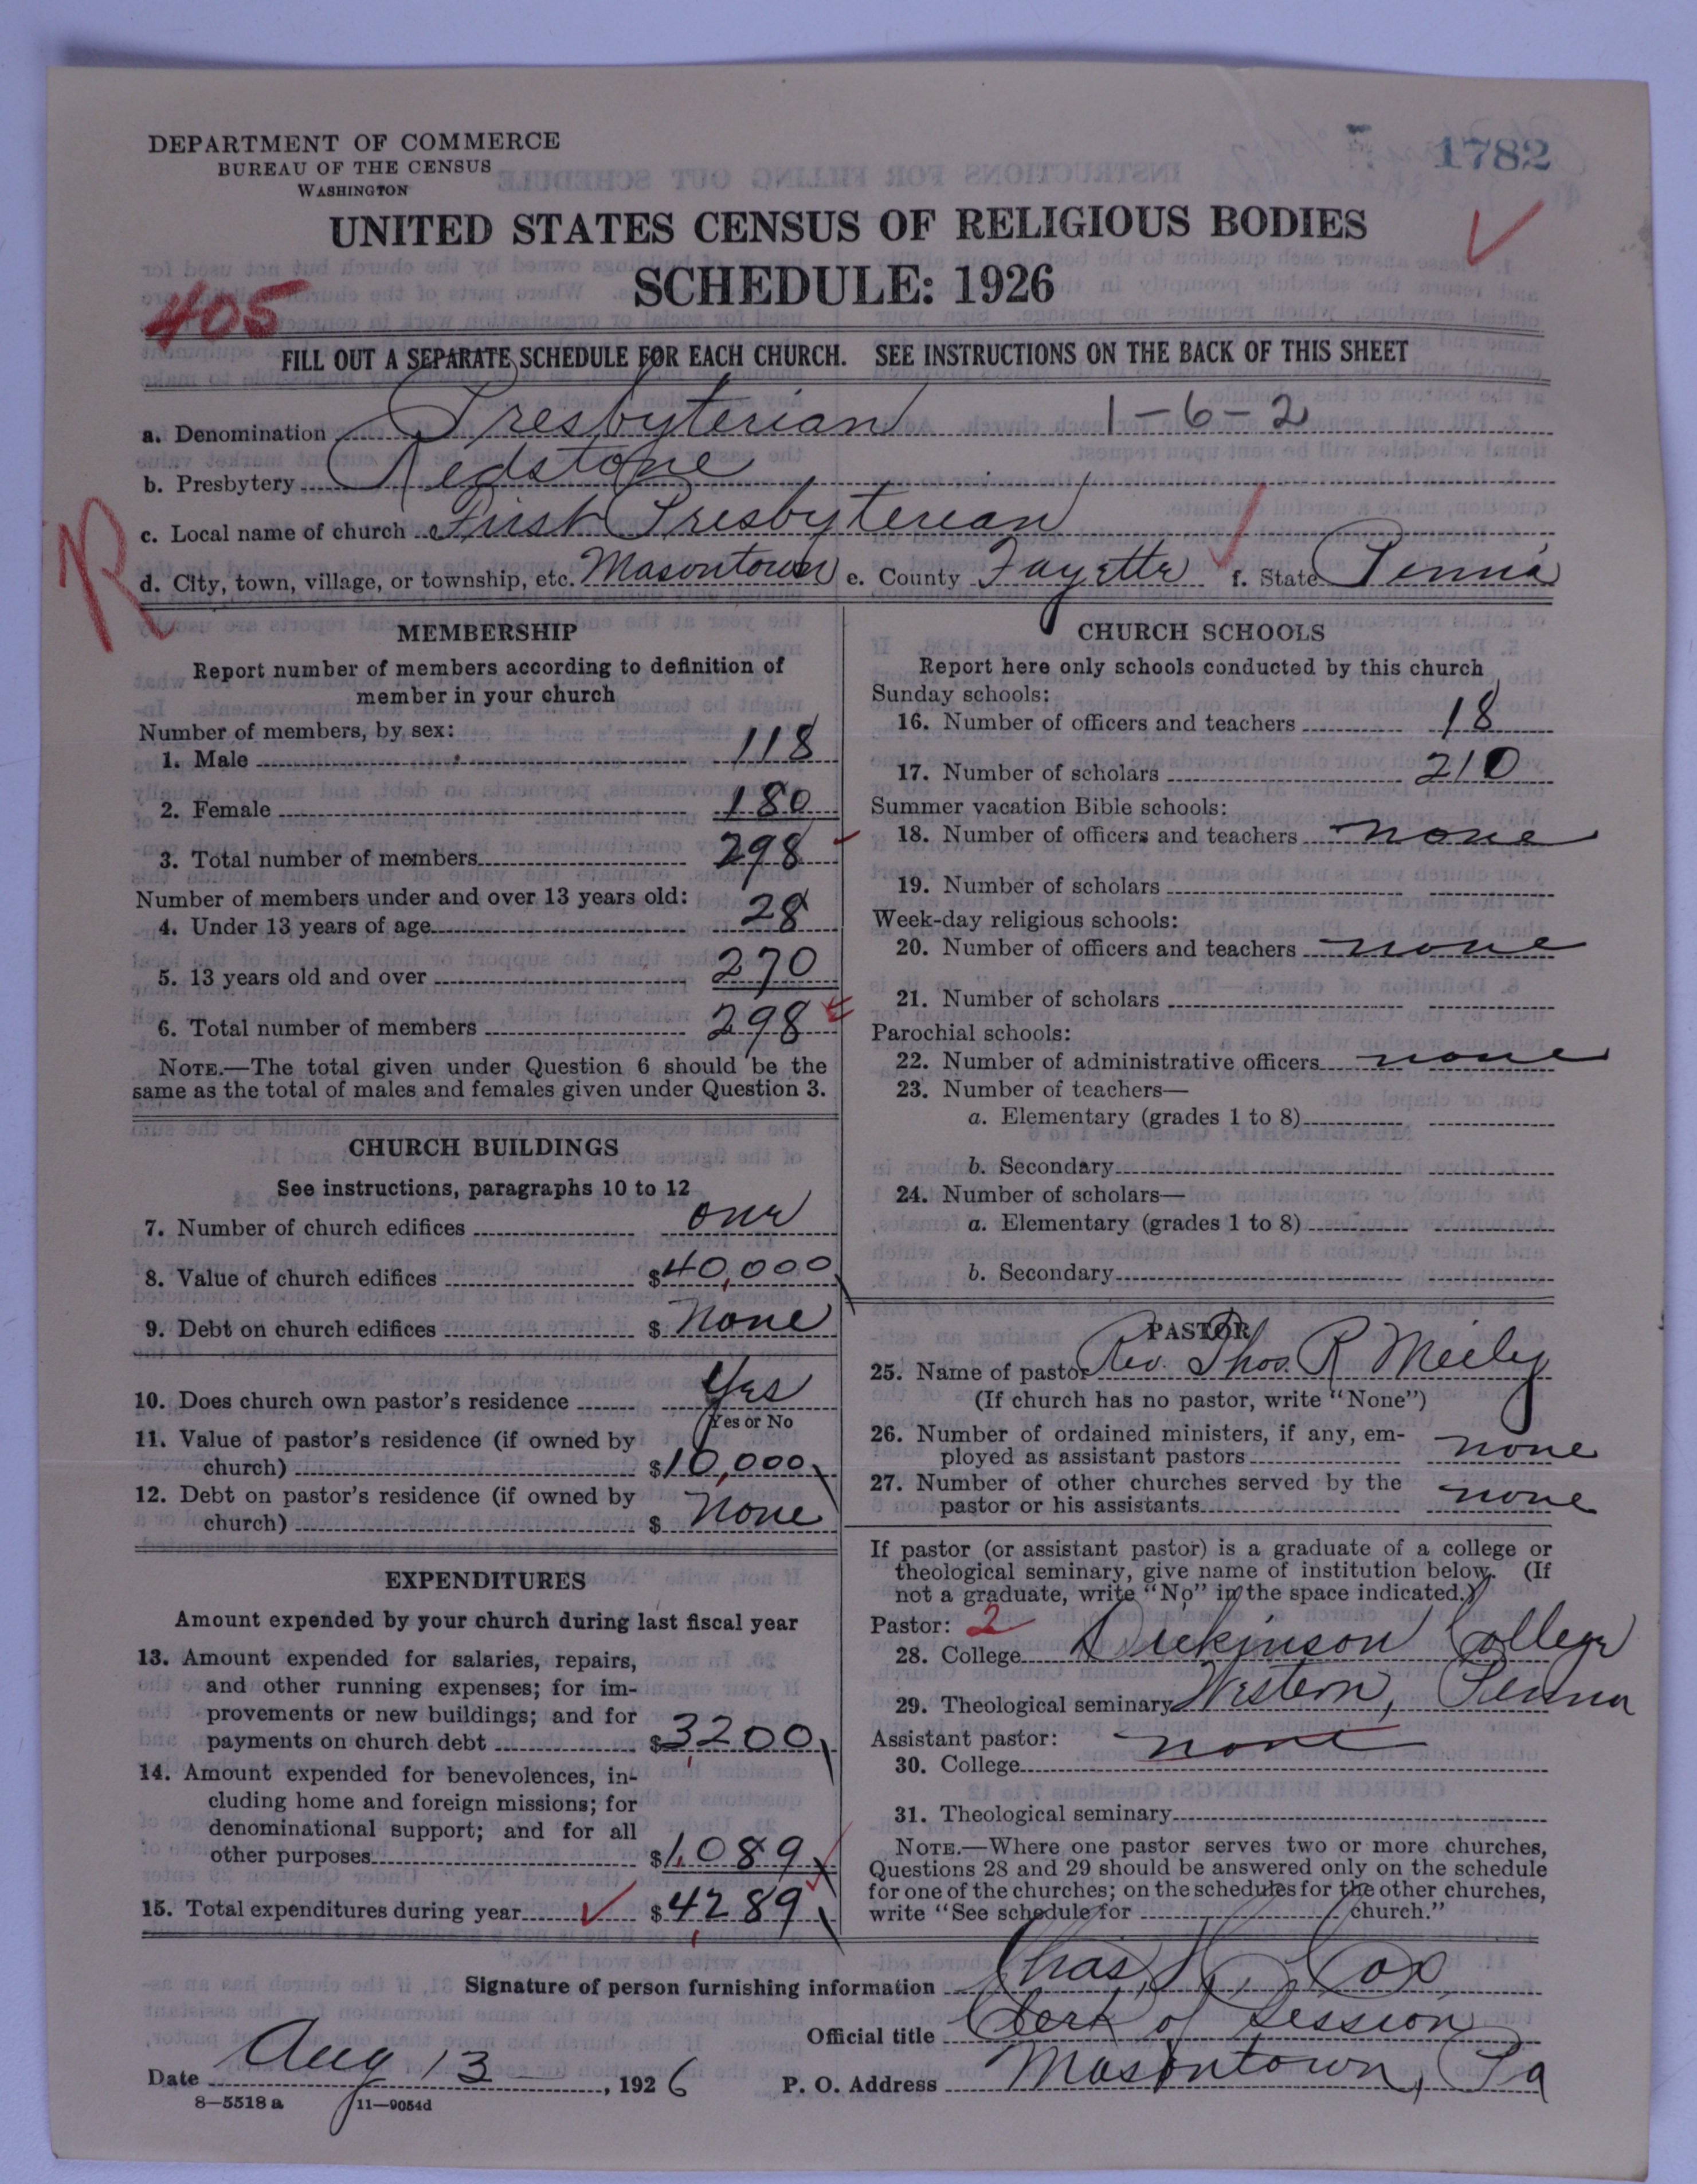 DEPARTMENT OF COMMERCE
BUREAU OF THE CENSUS
WASHINGTON
1782
UNITED STATES CENSUS OF RELIGIOUS BODIES
SCHEDULE: 1926
405
FILL OUT A SEPARATE SCHEDULE FOR EACH CHURCH. SEE INSTRUCTIONS ON THE BACK OF THIS SHEET
a. Denomination Presbyterian 1-6-2
b. Presbytery Redstone
c. Local name of church First Presbyterian
R
d. City, town, village, or township, etc. Masontown e. County Fayette f. State Penna
MEMBERSHIP
Report number of members according to definition of
member in your church
Number of members, by sex:
1. Male 118
2. Female 180
3. Total number of members 298
Number of members under and over 13 years old:
4. Under 13 years of age 28
5. 13 years old and over 270
6. Total number of members 298
NOTE.—The total given under Question 6 should be the
same as the total of males and females given under Question 3.
CHURCH BUILDINGS
See instructions, paragraphs 10 to 12
7. Number of church edifices one
8. Value of church edifices $40,000
9. Debt on church edifices $ None
10. Does church own pastor's residence Yes
Yes or No
11. Value of pastor's residence (if owned by
church) $10,000
12. Debt on pastor's residence (if owned by
church) $ None
EXPENDITURES
Amount expended by your church during last fiscal year
13. Amount expended for salaries, repairs,
and other running expenses; for im-
provements or new buildings; and for
payments on church debt $3200
14. Amount expended for benevolences, in-
cluding home and foreign missions; for
denominational support; and for all
other purposes $1,089
15. Total expenditures during year $4289
CHURCH SCHOOLS
Report here only schools conducted by this church
Sunday schools:
16. Number of officers and teachers 18
17. Number of scholars 210
Summer vacation Bible schools:
18. Number of officers and teachers none
19. Number of scholars
Week-day religious schools:
20. Number of officers and teachers none
21. Number of scholars
Parochial schools:
22. Number of administrative officers none
23. Number of teachers—
a. Elementary (grades 1 to 8)
b. Secondary
24. Number of scholars—
a. Elementary (grades 1 to 8)
b. Secondary
PASTOR
25. Name of pastor Rev. Thos. R Meily
(If church has no pastor, write "None")
26. Number of ordained ministers, if any, em-
ployed as assistant pastors none
27. Number of other churches served by the
pastor or his assistants none
If pastor (or assistant pastor) is a graduate of a college or
theological seminary, give name of institution below. (If
not a graduate, write "No" in the space indicated.)
Pastor: 2
28. College Dickinson College
29. Theological seminary Western, Penna
Assistant pastor: none
30. College
31. Theological seminary
NOTE.—Where one pastor serves two or more churches,
Questions 28 and 29 should be answered only on the schedule
for one of the churches; on the schedules for the other churches,
write "See schedule for church."
Signature of person furnishing information Chas. H. Cox
Official title Clerk of Session
Date Aug 13, 1926 P. O. Address Masontown, Pa
8—5518 a 11—9054d